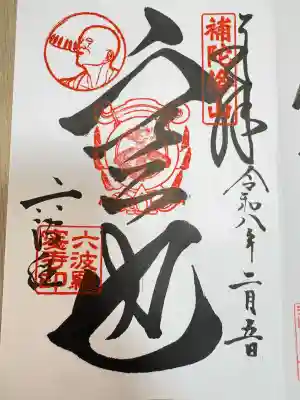 奉拝
補陀洛山
令和八年二月五日
空也
六波羅
六波羅
蜜寺印